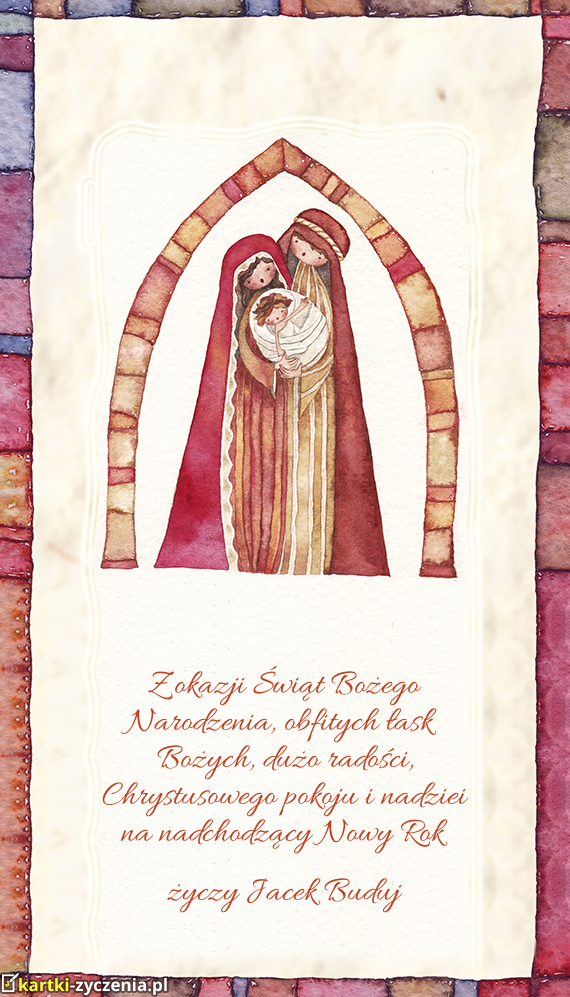 Z okazji Świąt Bożego
Narodzenia, obfitych łask
Bożych, dużo radości,
Chrystusowego pokoju i nadziei
na nadchodzący Nowy Rok
życzy Jacek Buduj
kartki-zyczenia.pl